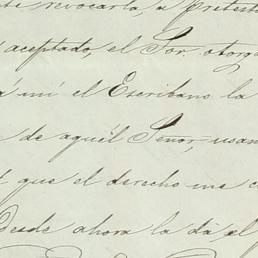 revocarla, a
aceptado, el Sor. otorga
mí el Escribano la
de aquél Señor, usan
que el derecho me c
Desde ahora la dá el